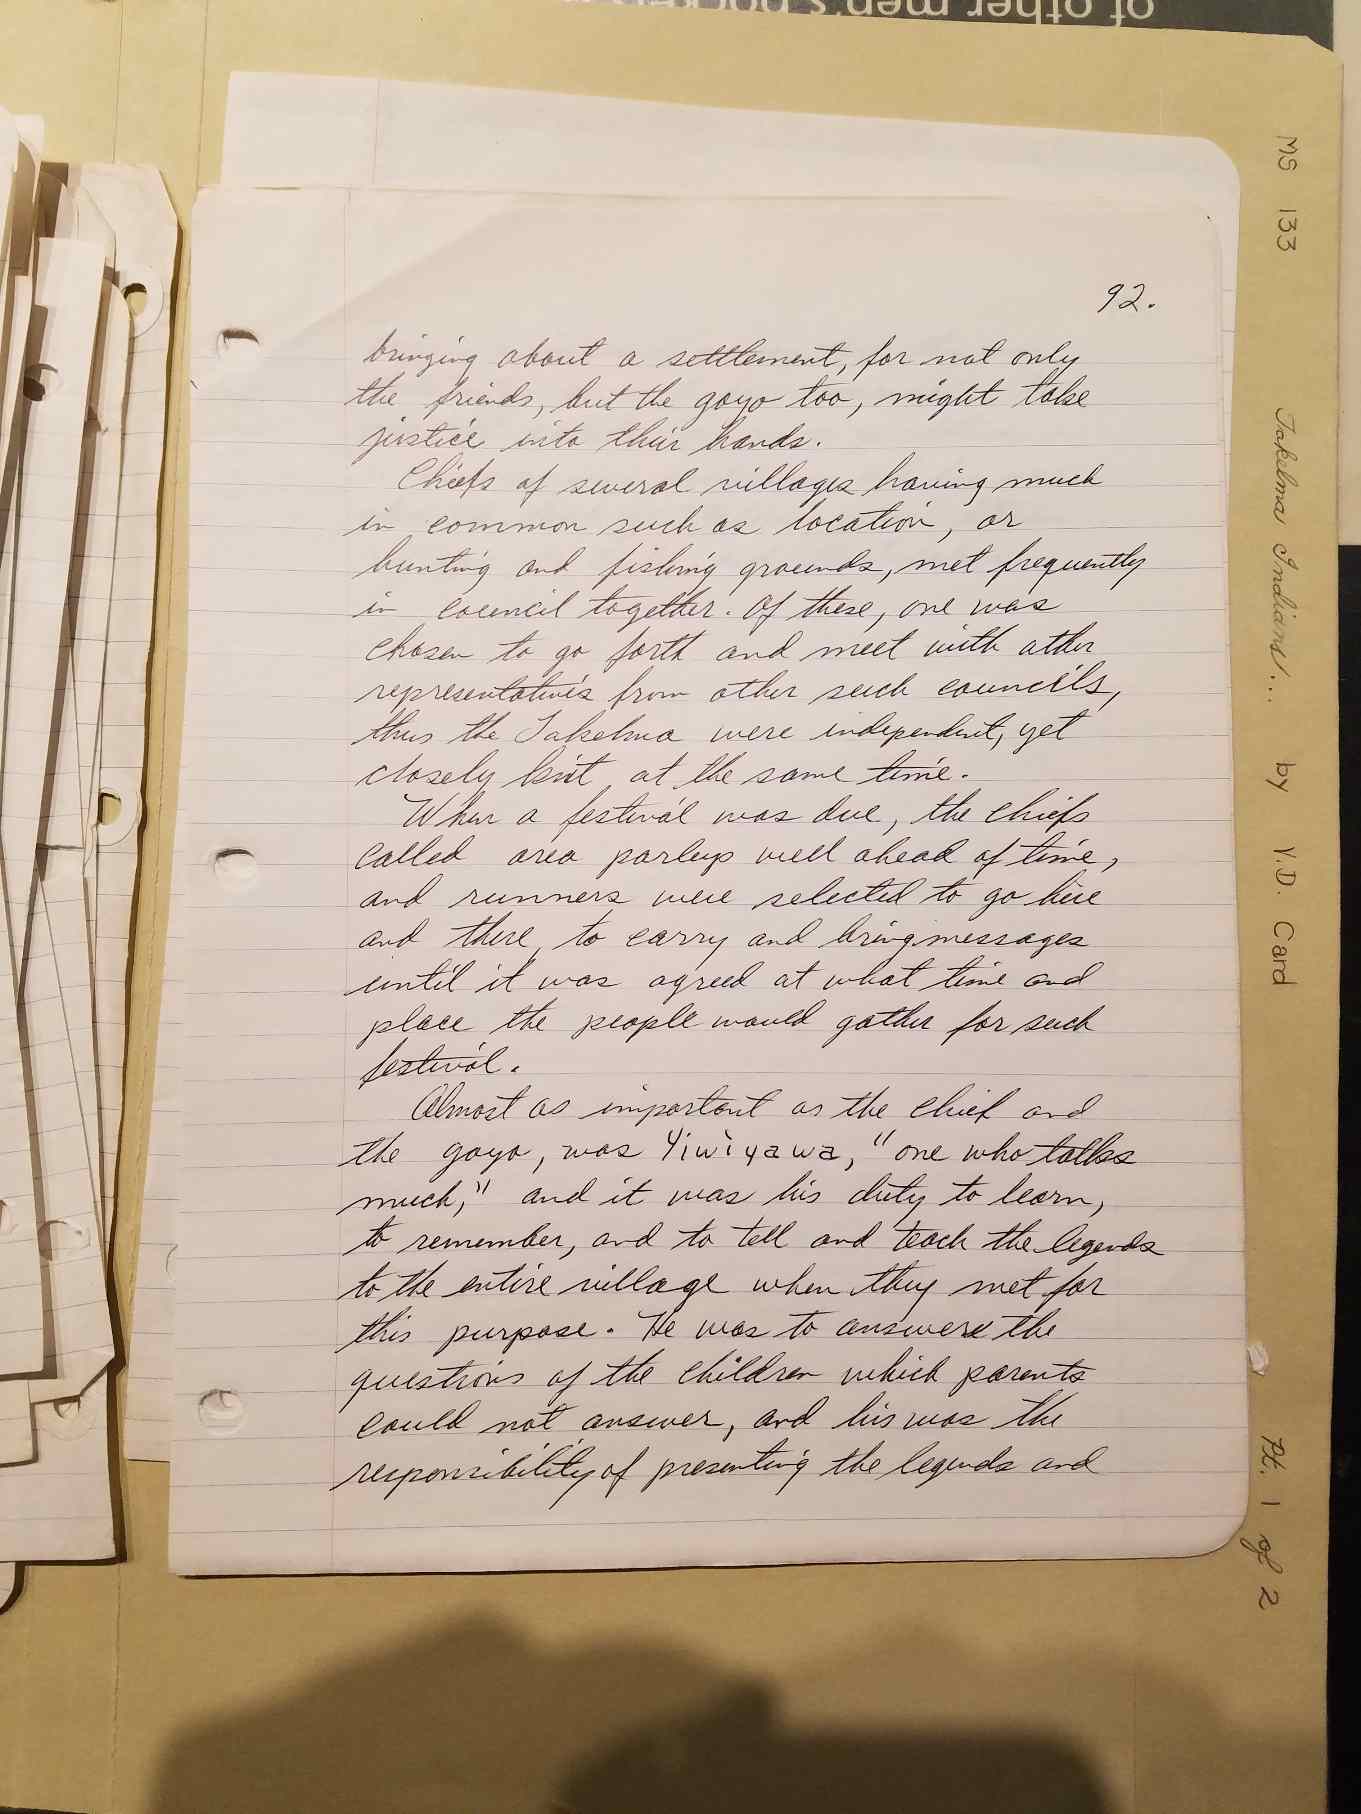 of other men's
92.
bringing about a settlement, for not only
the friends, but the goyo too, might take
justice into their hands.
Chiefs of several villages having much
in common such as location, or
hunting and fishing grounds, met frequently
in council together. Of these, one was
chosen to go forth and meet with other
representatives from other such councils,
thus the Takelma were independent, yet
closely knit at the same time.
When a festival was due, the chiefs
called area parleys well ahead of time,
and runners were selected to go here
and there, to carry and bring messages
until it was agreed at what time and
place the people would gather for such
festival.
Almost as important as the chief and
the goyo, was Yiwiyawa, "one who talks
much," and it was his duty to learn,
to remember, and to tell and teach the legends
to the entire village when they met for
this purpose. He was to answer the
questions of the children which parents
could not answer, and his was the
responsibility of presenting the legends and
MS 133 Takelma Indians... by V.D. Card Pt. 1 of 2